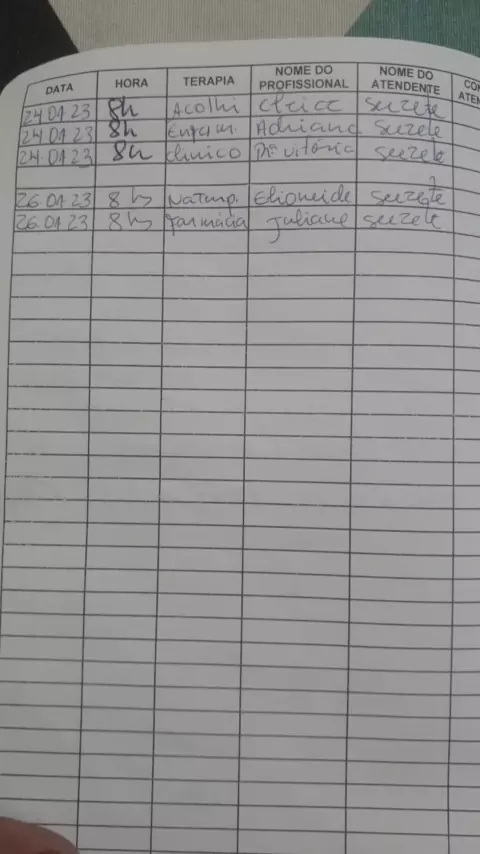 DATA HORA TERAPIA NOME DO PROFISSIONAL NOME DO ATENDENTE
24.01.23 8h Acolhi Suzete
24.01.23 8h Enferm. Adriana Suzete
24.01.23 8h clinico Drª Vitória Suzete
26.01.23 8hs Naturop. Elioneide Suzete
26.01.23 8hs farmácia Juliane Suzete